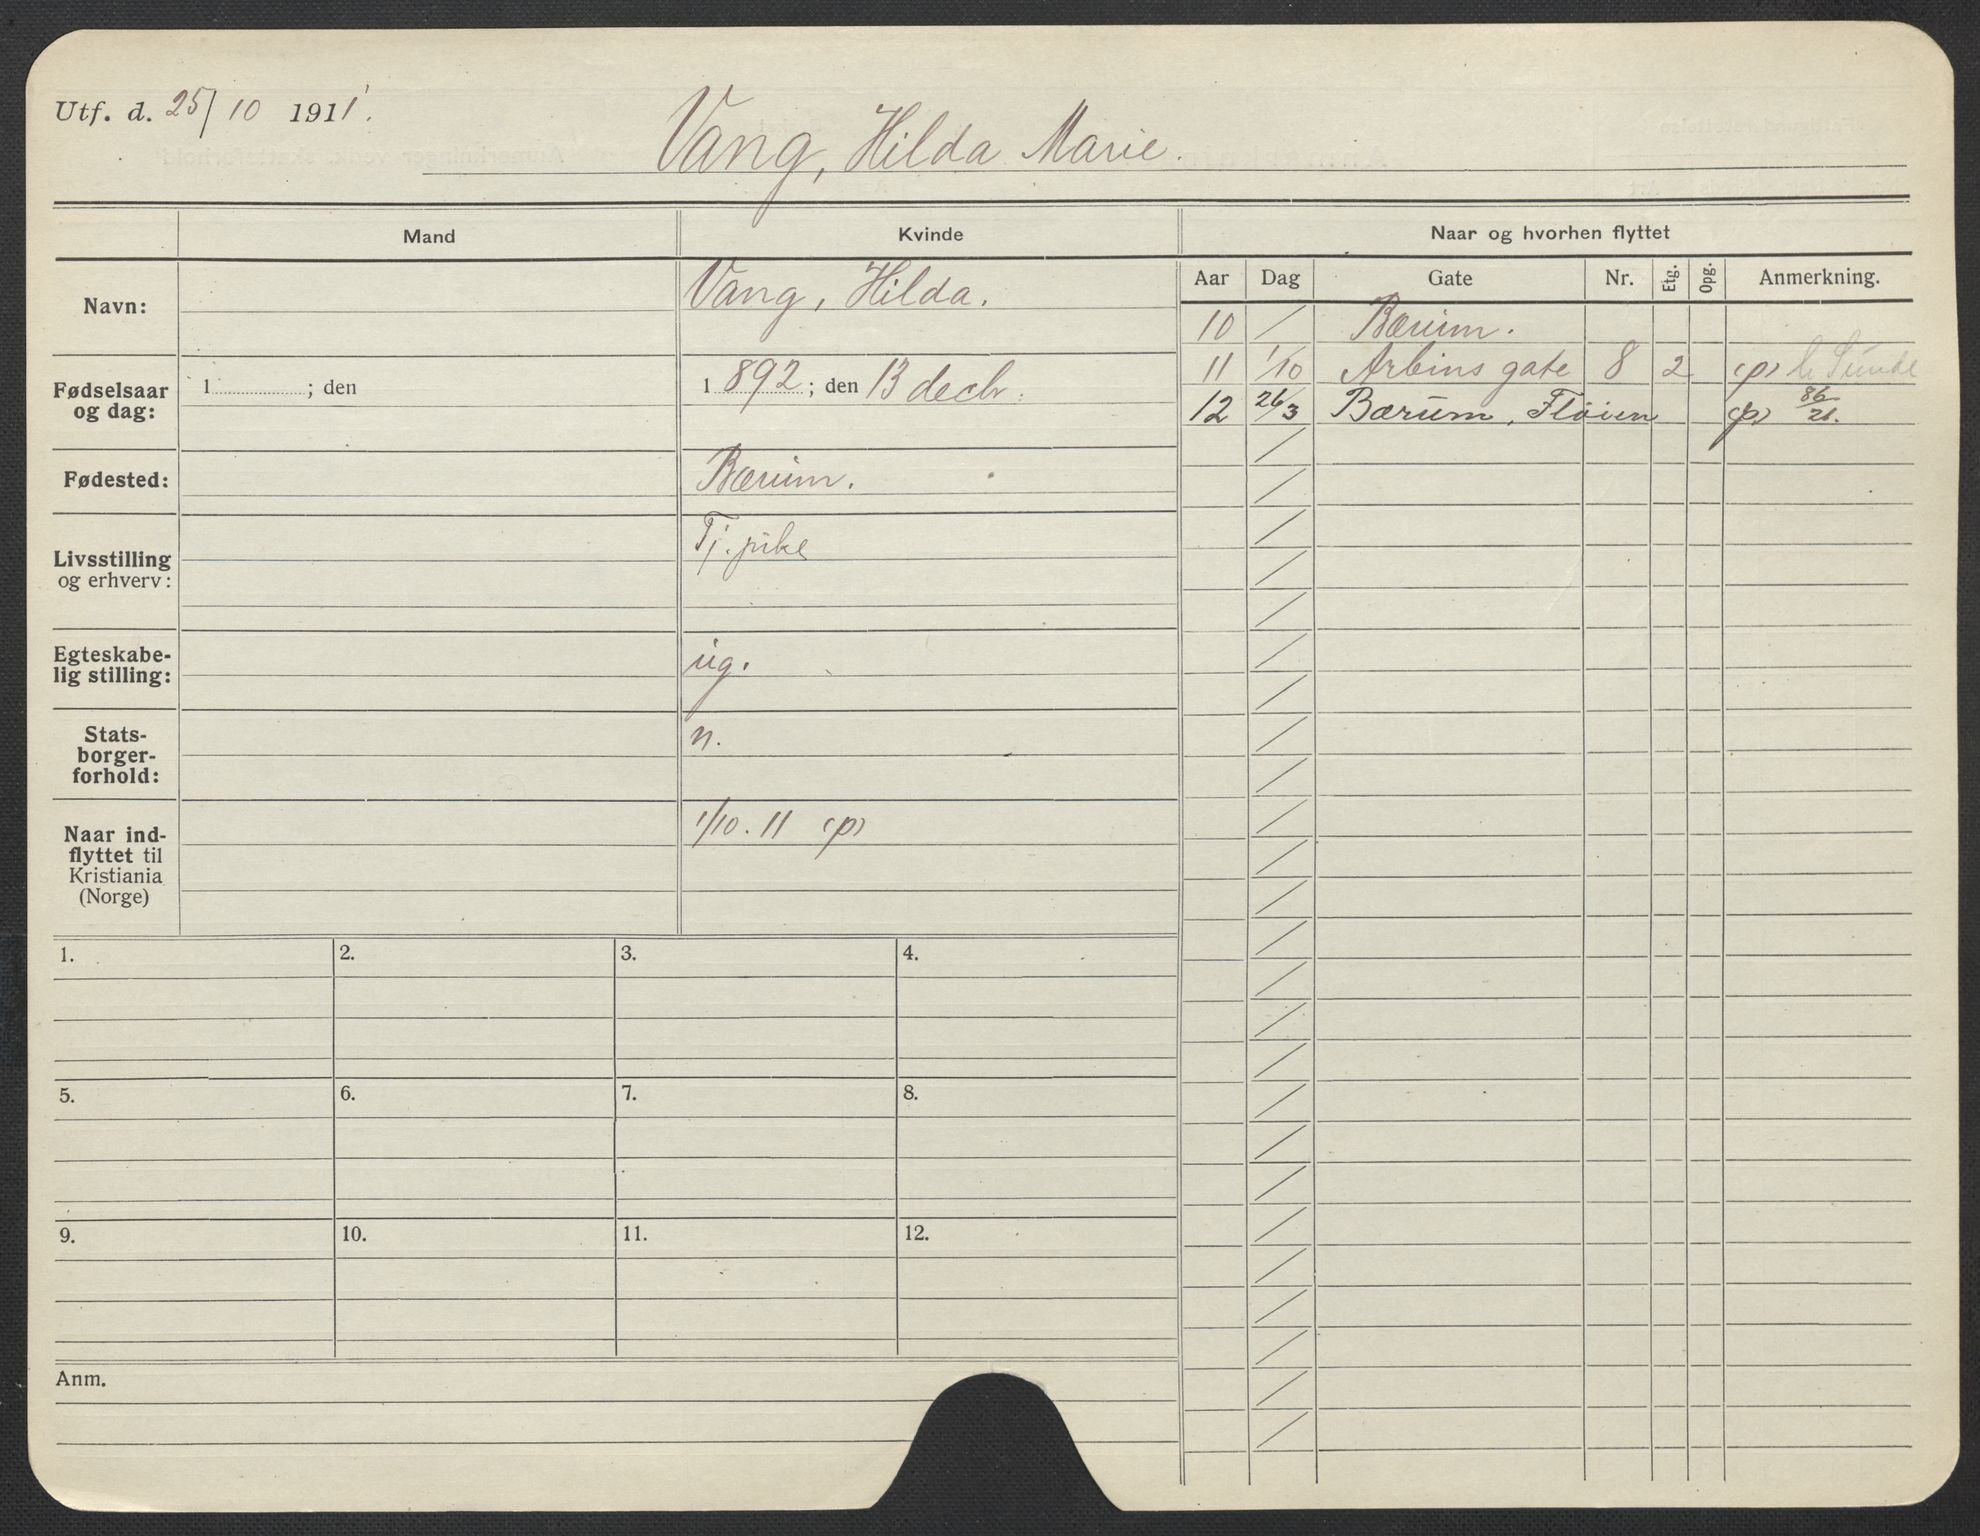 Utf. d. 25/10 1911.
Vang, Hilda Marie.
Mand Kvinde Naar og hvorhen flyttet
Aar Dag Gate Nr. Etg. Opg. Anmerkning.
Navn: Vang, Hilda.
Fødselsaar og dag: 1 ; den 1 892 ; den 13 decbr.
Fødested: Bærum.
Livsstilling og erhverv: Tj. pike
Egteskabe-
lig stilling: ug.
Stats-
borger-
forhold: n.
Naar ind-
flyttet til
Kristiania
(Norge) 1/10. 11 (p)
10 / Bærum.
11 1/10 Arbins gate 8 2 (p) Sunde
12 26/3 Bærum, Fløien (p) 86/21.
1. 2. 3. 4.
5. 6. 7. 8.
9. 10. 11. 12.
Anm.